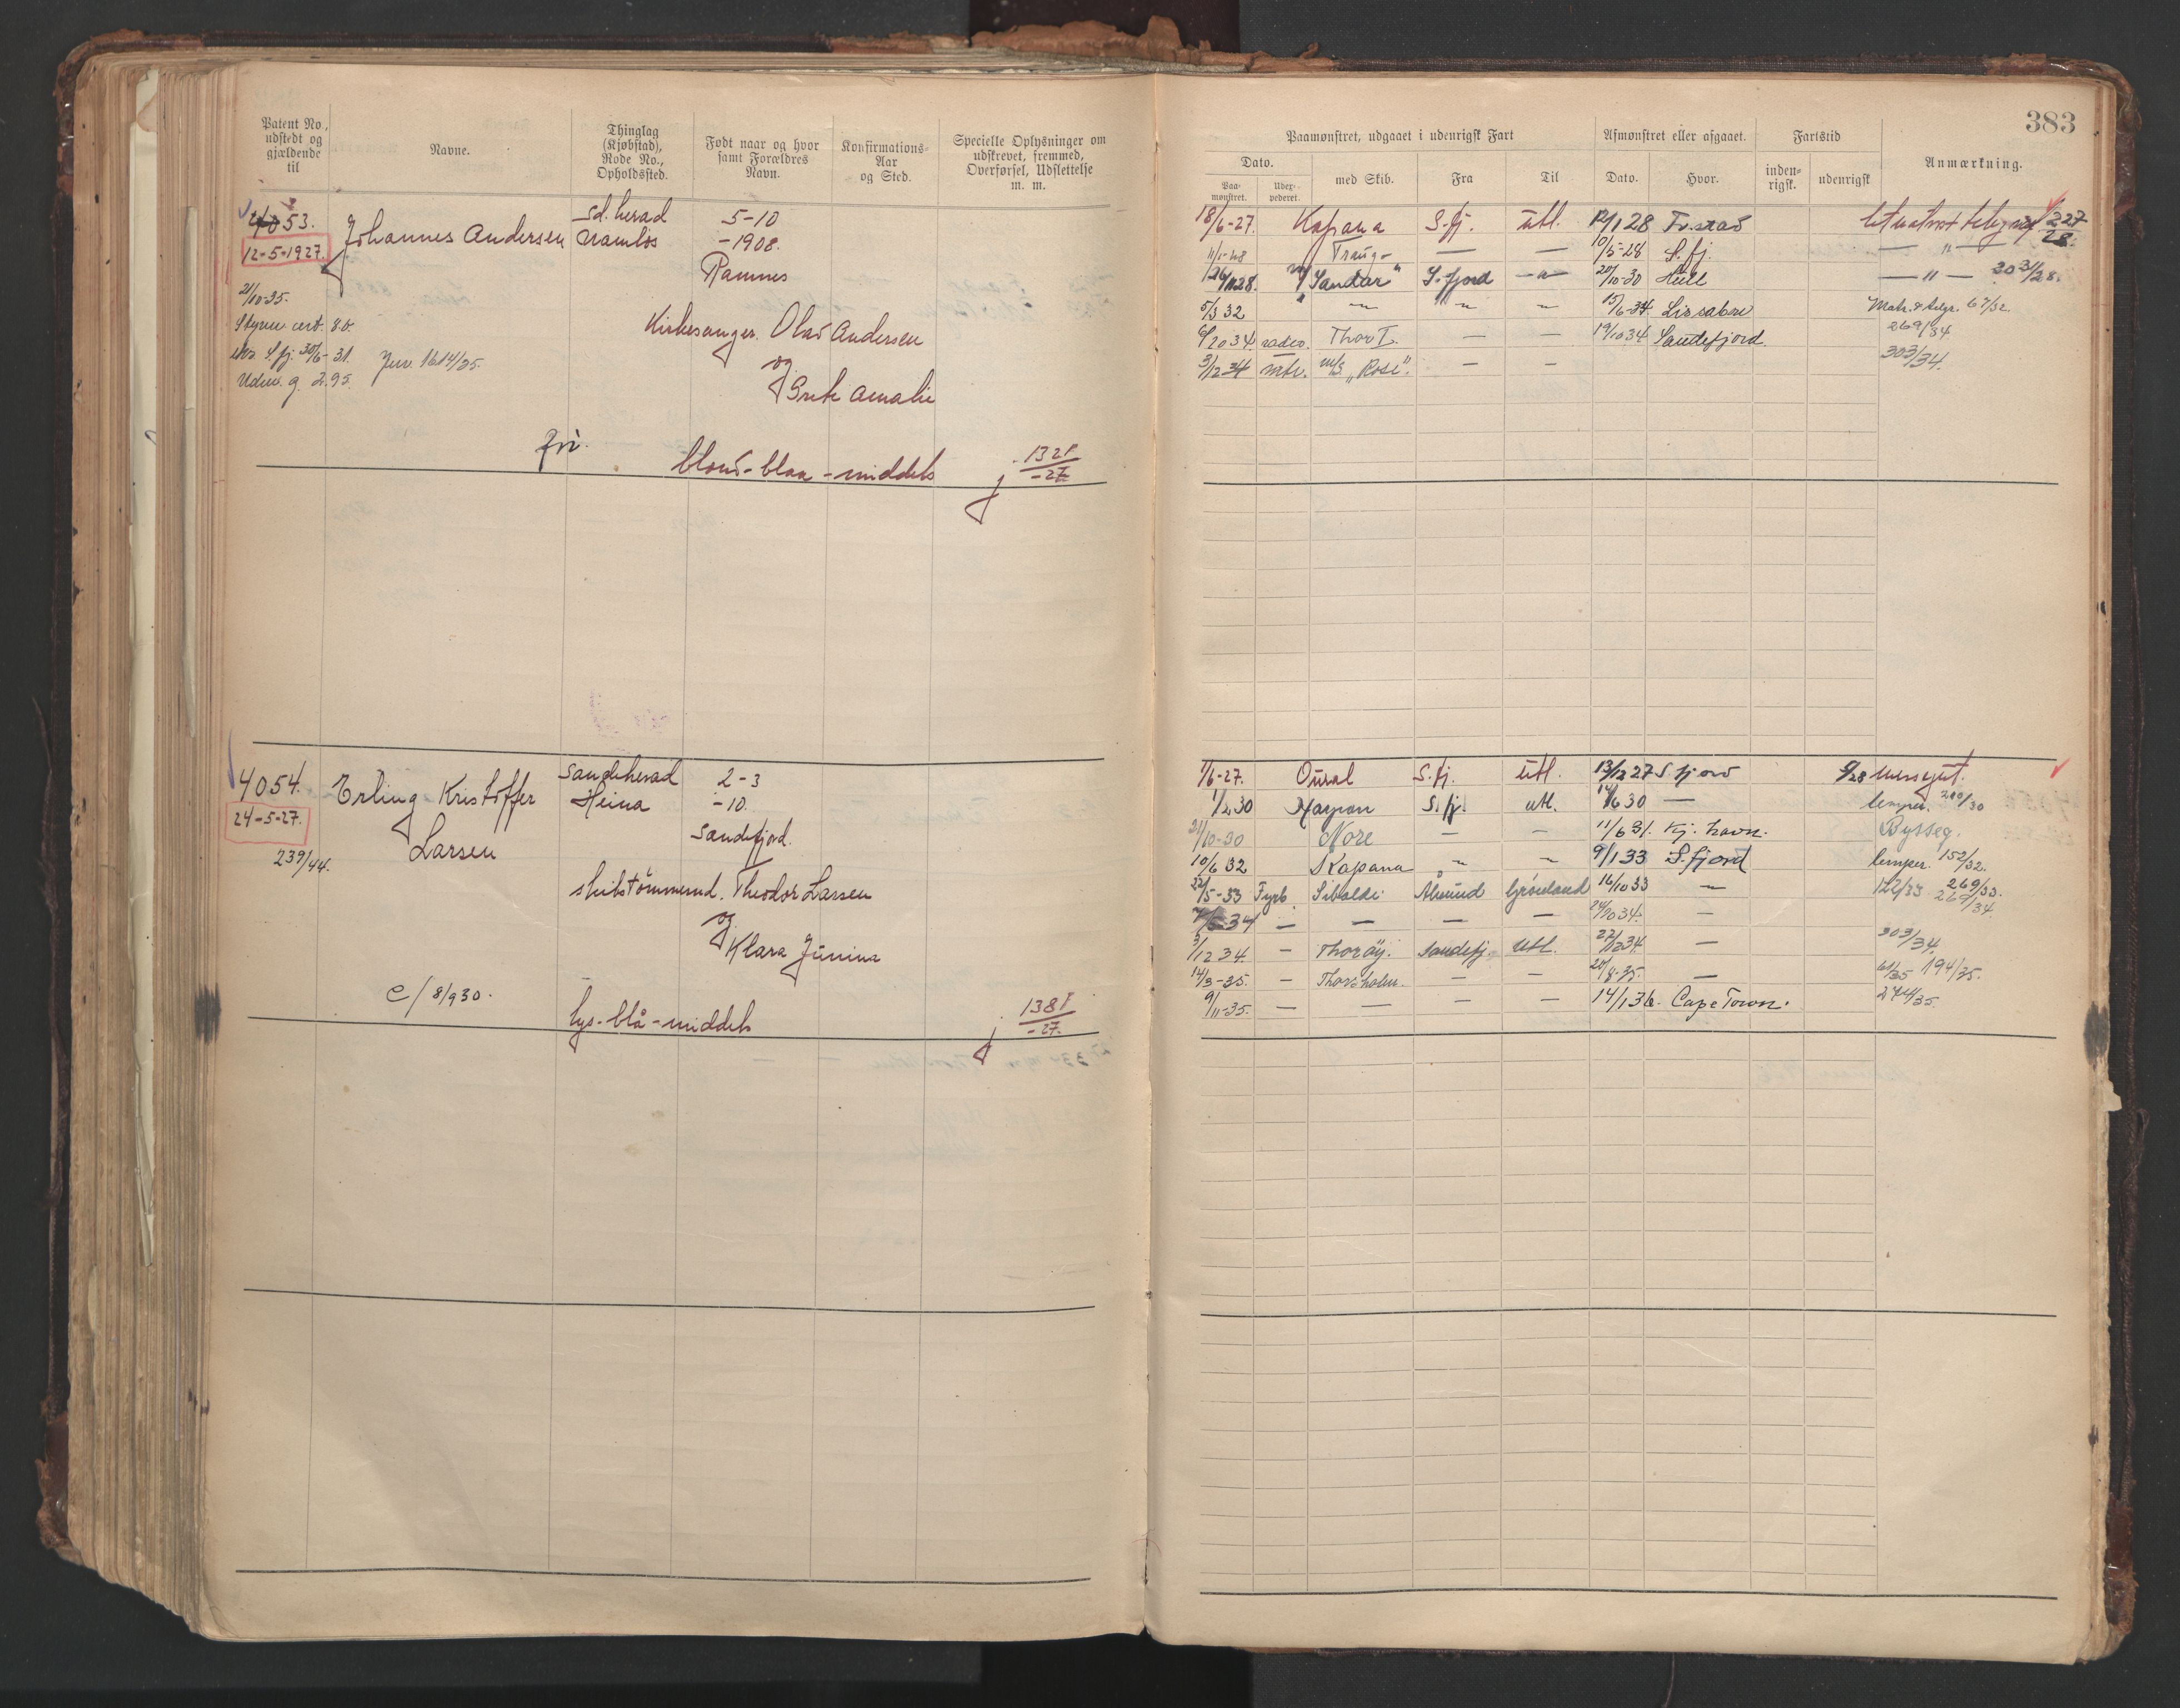 383
Patent No., udstedt og gjældende til
Navne.
Thinglag (Kjøbstad), Rode No., Opholdssted.
Født naar og hvor samt Forældres Navn.
Konfirmations-Aar og Sted.
Specielle Oplysninger om udskrevet, fremmed, Overførsel, Udslettelse m. m.
Paamønstret, udgaaet i udenrigsk Fart
Afmønstret eller afgaaet.
Fartstid
Anmærkning.
Dato.
Paa-mønstret.
Udex-pederet.
med Skib.
Fra
Til
Dato.
Hvor.
inden-rigsk.
udenrigsk
4053.
12-5-1927.
Johannes Andersen
Sd. herad
5-10
-1908.
Ramnes
21/10-35.
Styrm. cert. 80.
S.fj. 30/6-31.
g 2.95.
Jnr. 1614/35.
Kirkesanger. Olav Andersen
og
Grete Amalie
fri.
blond-blaa-middels
j 1321/-27
18/6-27. Kapana S.fj. utl. 12/1 28 Fr.stad 227/28.
Traug- — — 10/5-28 S.fj. — " —
26/11 28. M/ "Sandar" S.fjord — " — 20/10-30 Hull — " — 203/28.
5/3 32 " " " " 15/6-34 Lissabon Matr. & telgr. 67/32.
6/2034 radio. Thor I. — — 19/1034 Sandefjord. 269/34
3/1234 mtr. m/S. "Rosi". — — 303/34.
4054.
24-5-27.
239/44.
Erling Kristoffer
Larsen
Sandeherad
Heina
2-3
-10.
Sandefjord.
skibstømmermd. Theodor Larsen
og
Klara Junina
e/ 8/930.
lys-blå-middels
j 1381/-27.
1/6-27. Oural S.fj. utl. 13/12 27 S.fjord messegut.
1/2 30 S.fj. utl. 14/6 30 — lemper. 200/30
21/10-30 Nore — — 11/6 31. Kj.havn. Bysseg.
10/6 32 Kapana " " 9/1 33 S.fjord lemper. 152/32.
22/5-33 Fyrb. Sibaldi Ålesund Grönland 16/10 33 " 122/33 269/33.
5-34 — — — — 24/1034. — 269/34.
3/12 34. — Thoröy. Sandefj. Utl. 22/1234. — 303/34,
14/3-35. — Thorsholm. — — 20/8-35. — 61/35 194/35.
9/11-35. — — — — 14/1 36. Cape Town. 244/35.